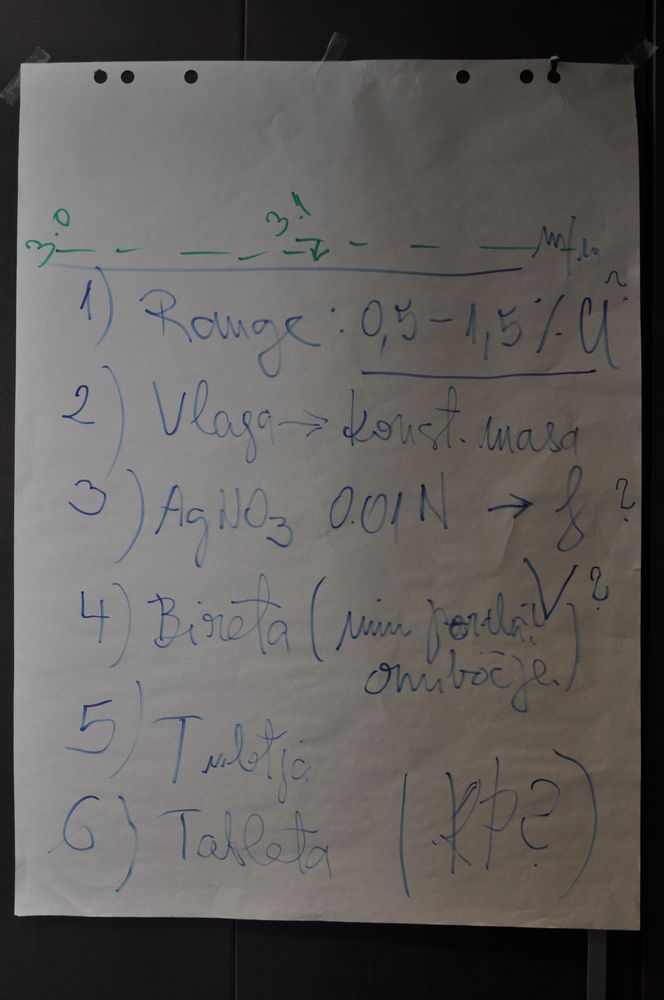 3.0 3.1
1) Range: 0,5 - 1,5 % Cl ?
2) Vlaga → konst. masa
3) AgNO3 0.01N → f ?
4) Bireta (min V ?
5)
6) Tableta (KP?)